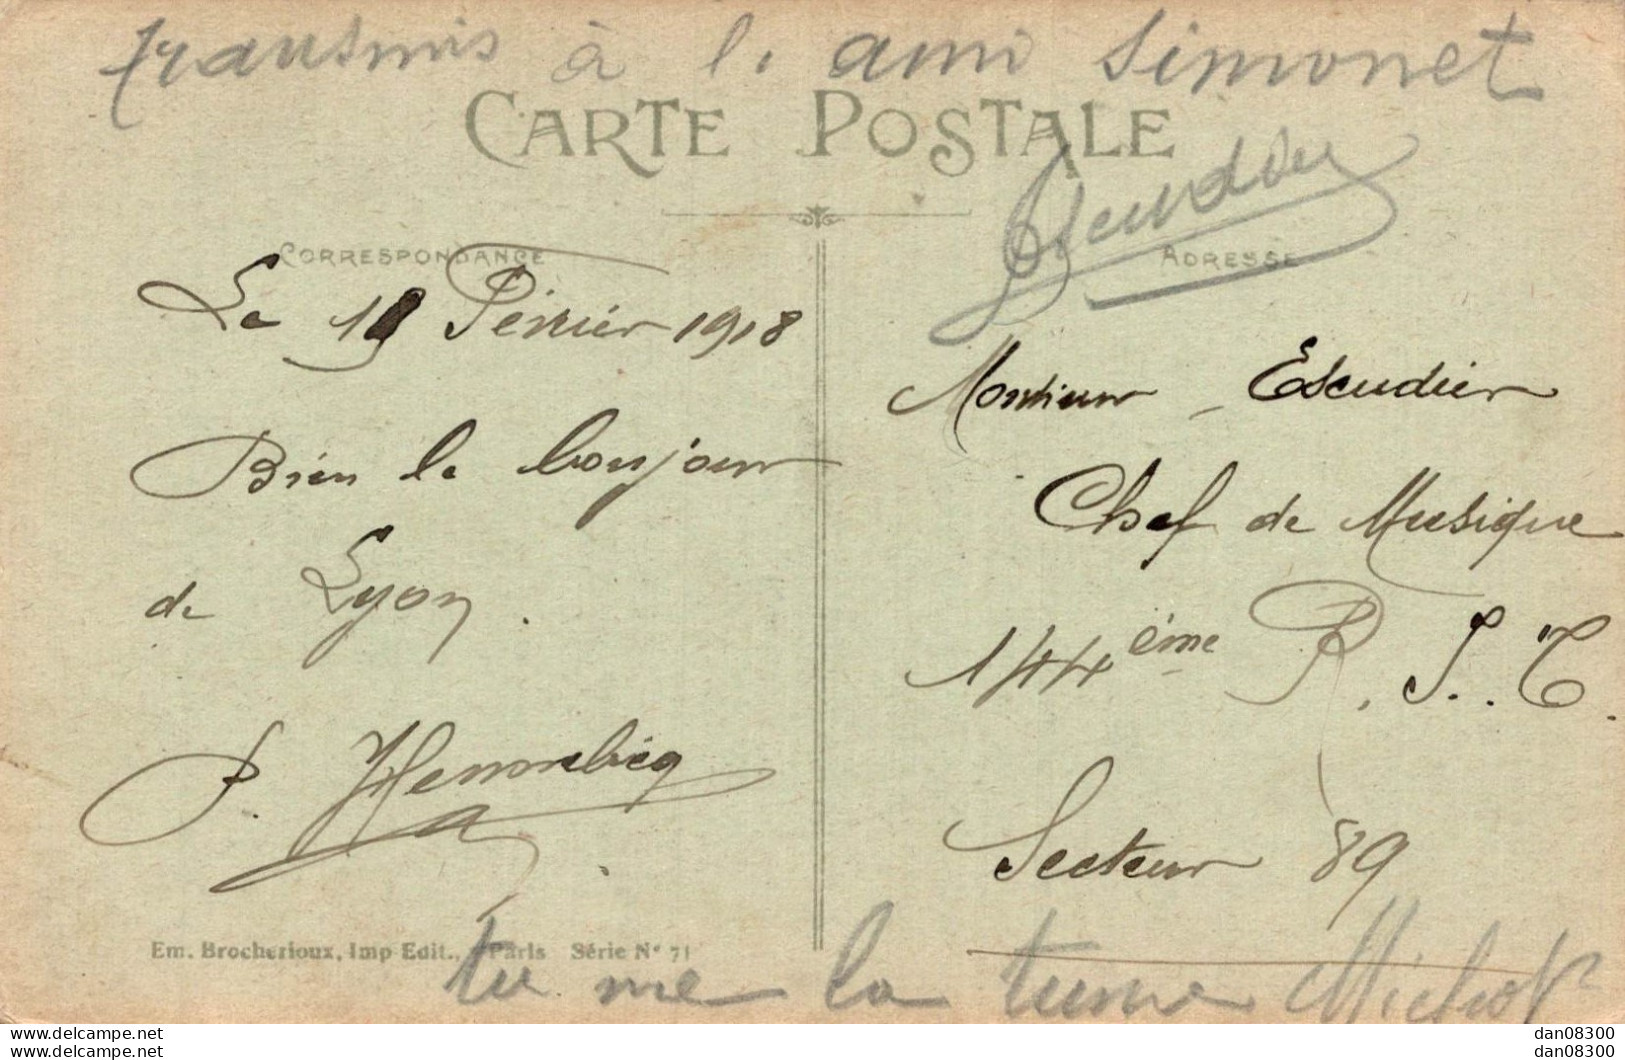 transmis à l'ami Simonet
CARTE POSTALE
Escudier
CORRESPONDANCE
ADRESSE
Le 18 Février 1918
Bien le bonjour
de Lyon.
Monsieur Escudier
Chef de Musique
144ème R. I. T.
Secteur 89
Em. Brocherioux, Imp Edit., Paris Série N° 71
tu me la
dan08300
dan08300
dan08300
dan08300